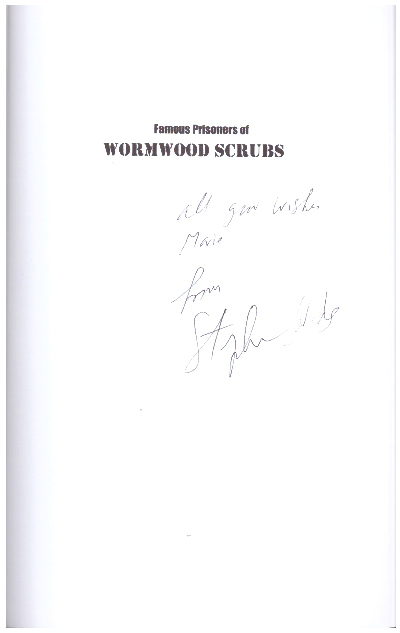 Famous Prisoners of
WORMWOOD SCRUBS
all good wishes
Marie
from
Stephen